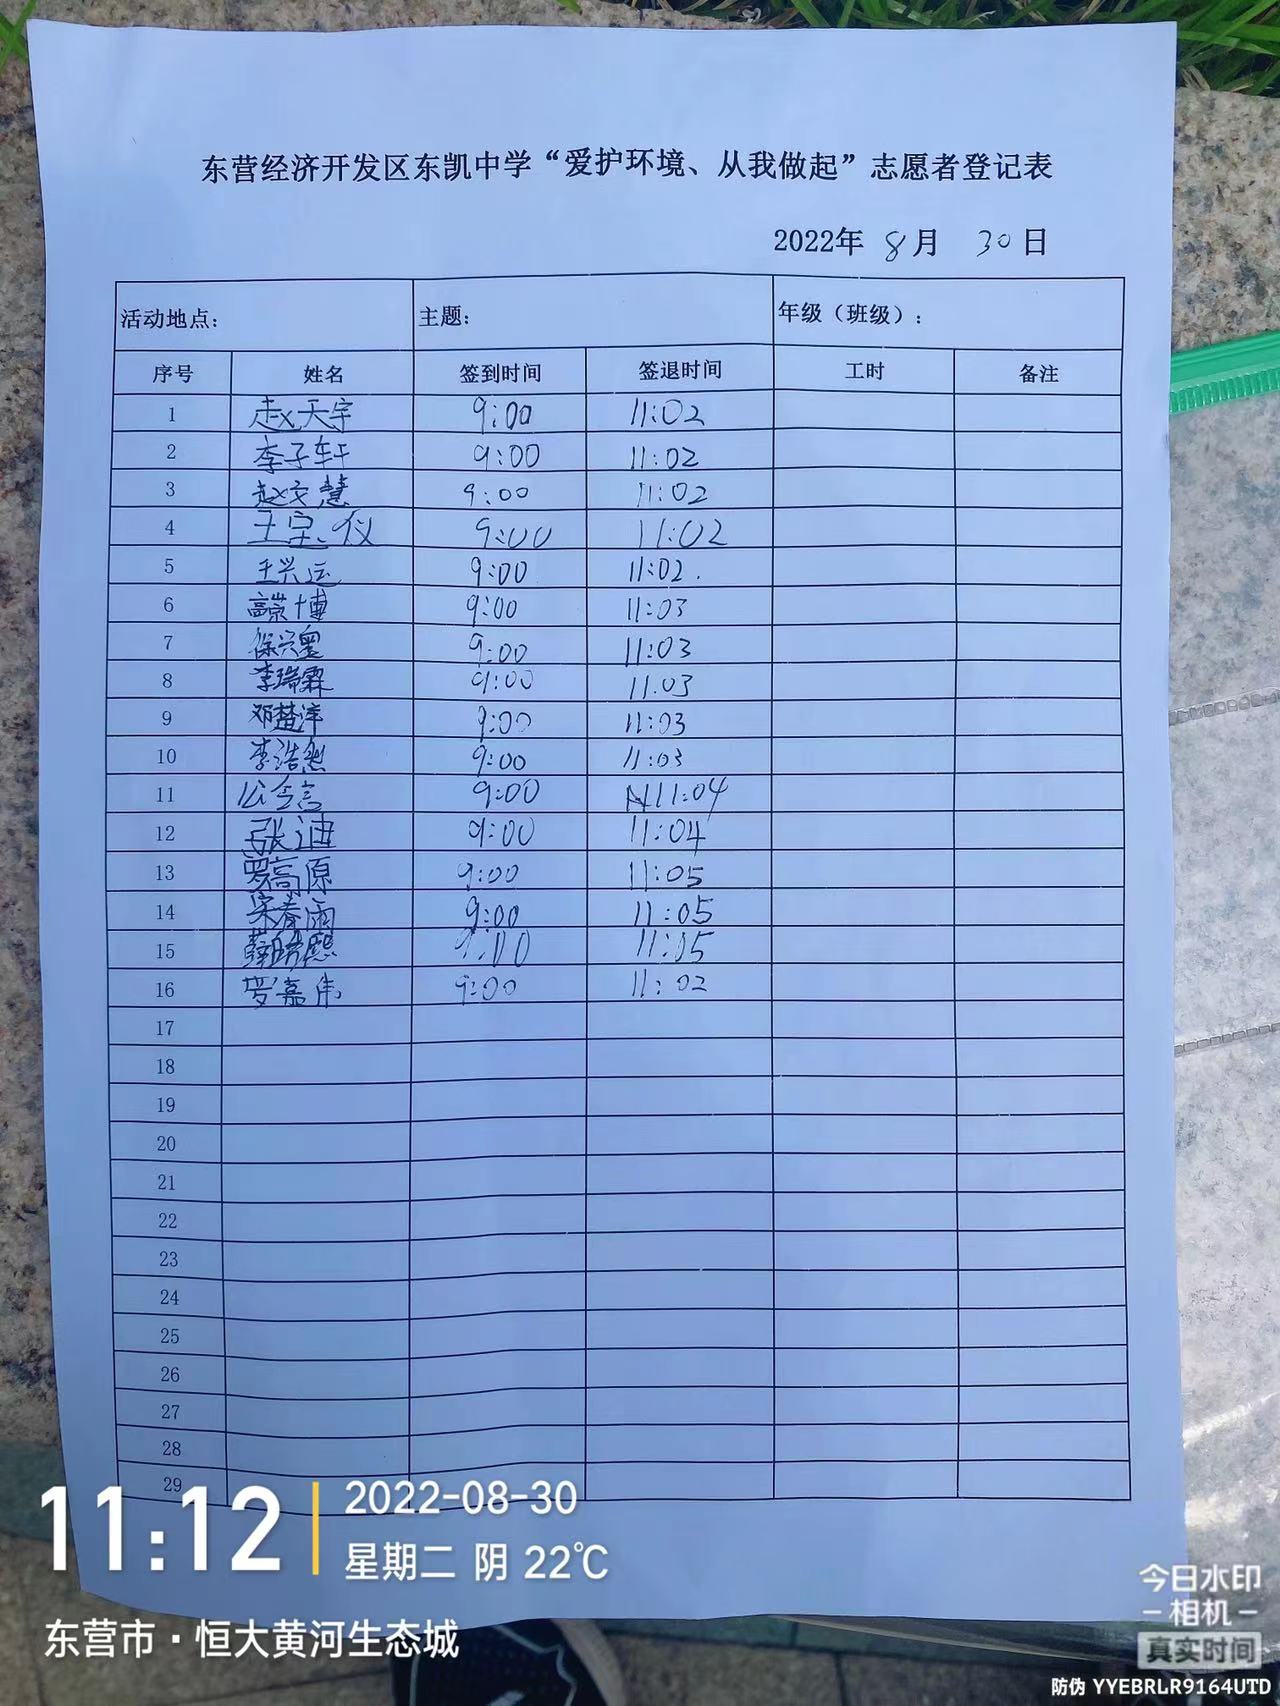 东营经济开发区东凯中学“爱护环境、从我做起”志愿者登记表
2022年 8月 30日
活动地点: 主题: 年级（班级）:
序号 姓名 签到时间 签退时间 工时 备注
1 赵天宇 9:00 11:02
2 李子轩 9:00 11:02
3 赵文慧 9:00 11:02
4 王宗仪 9:00 11:02
5 王兴运 9:00 11:02.
6 高崇博 9:00 11:03
7 徐兴 9:00 11:03
8 李瑞霖 9:00 11.03
9 邓楚洋 9:00 11:03
10 李浩然 9:00 11:03
11 公令言 9:00 11:04
12 张迪 9:00 11:04
13 罗高原 9:00 11:05
14 宋春雨 9:00 11:05
15 9:00 11:05
16 罗嘉伟 9:00 11:02
17
18
19
20
21
22
23
24
25
26
27
28
29
11:12
2022-08-30
星期二 阴 22℃
东营市·恒大黄河生态城
今日水印
-相机-
真实时间
防伪 YYEBRLR9164UTD